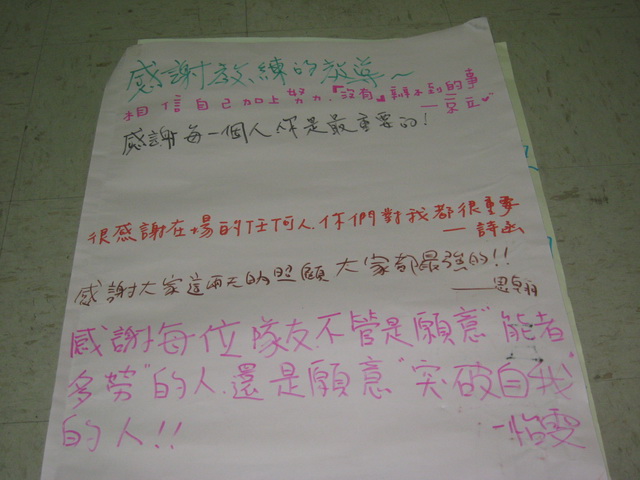 感謝教練的教導~
相信自己加上努力,『沒有』辦不到的事
感謝每一個人你是最重要的!
很感謝在場的任何人.你們對我都很重要
—詩函
感謝大家這兩天的照顧 大家都最強的!!
感謝每位隊友.不管是願意"能者
多勞"的人.還是願意"突破自我"
的人!!
—怡雯